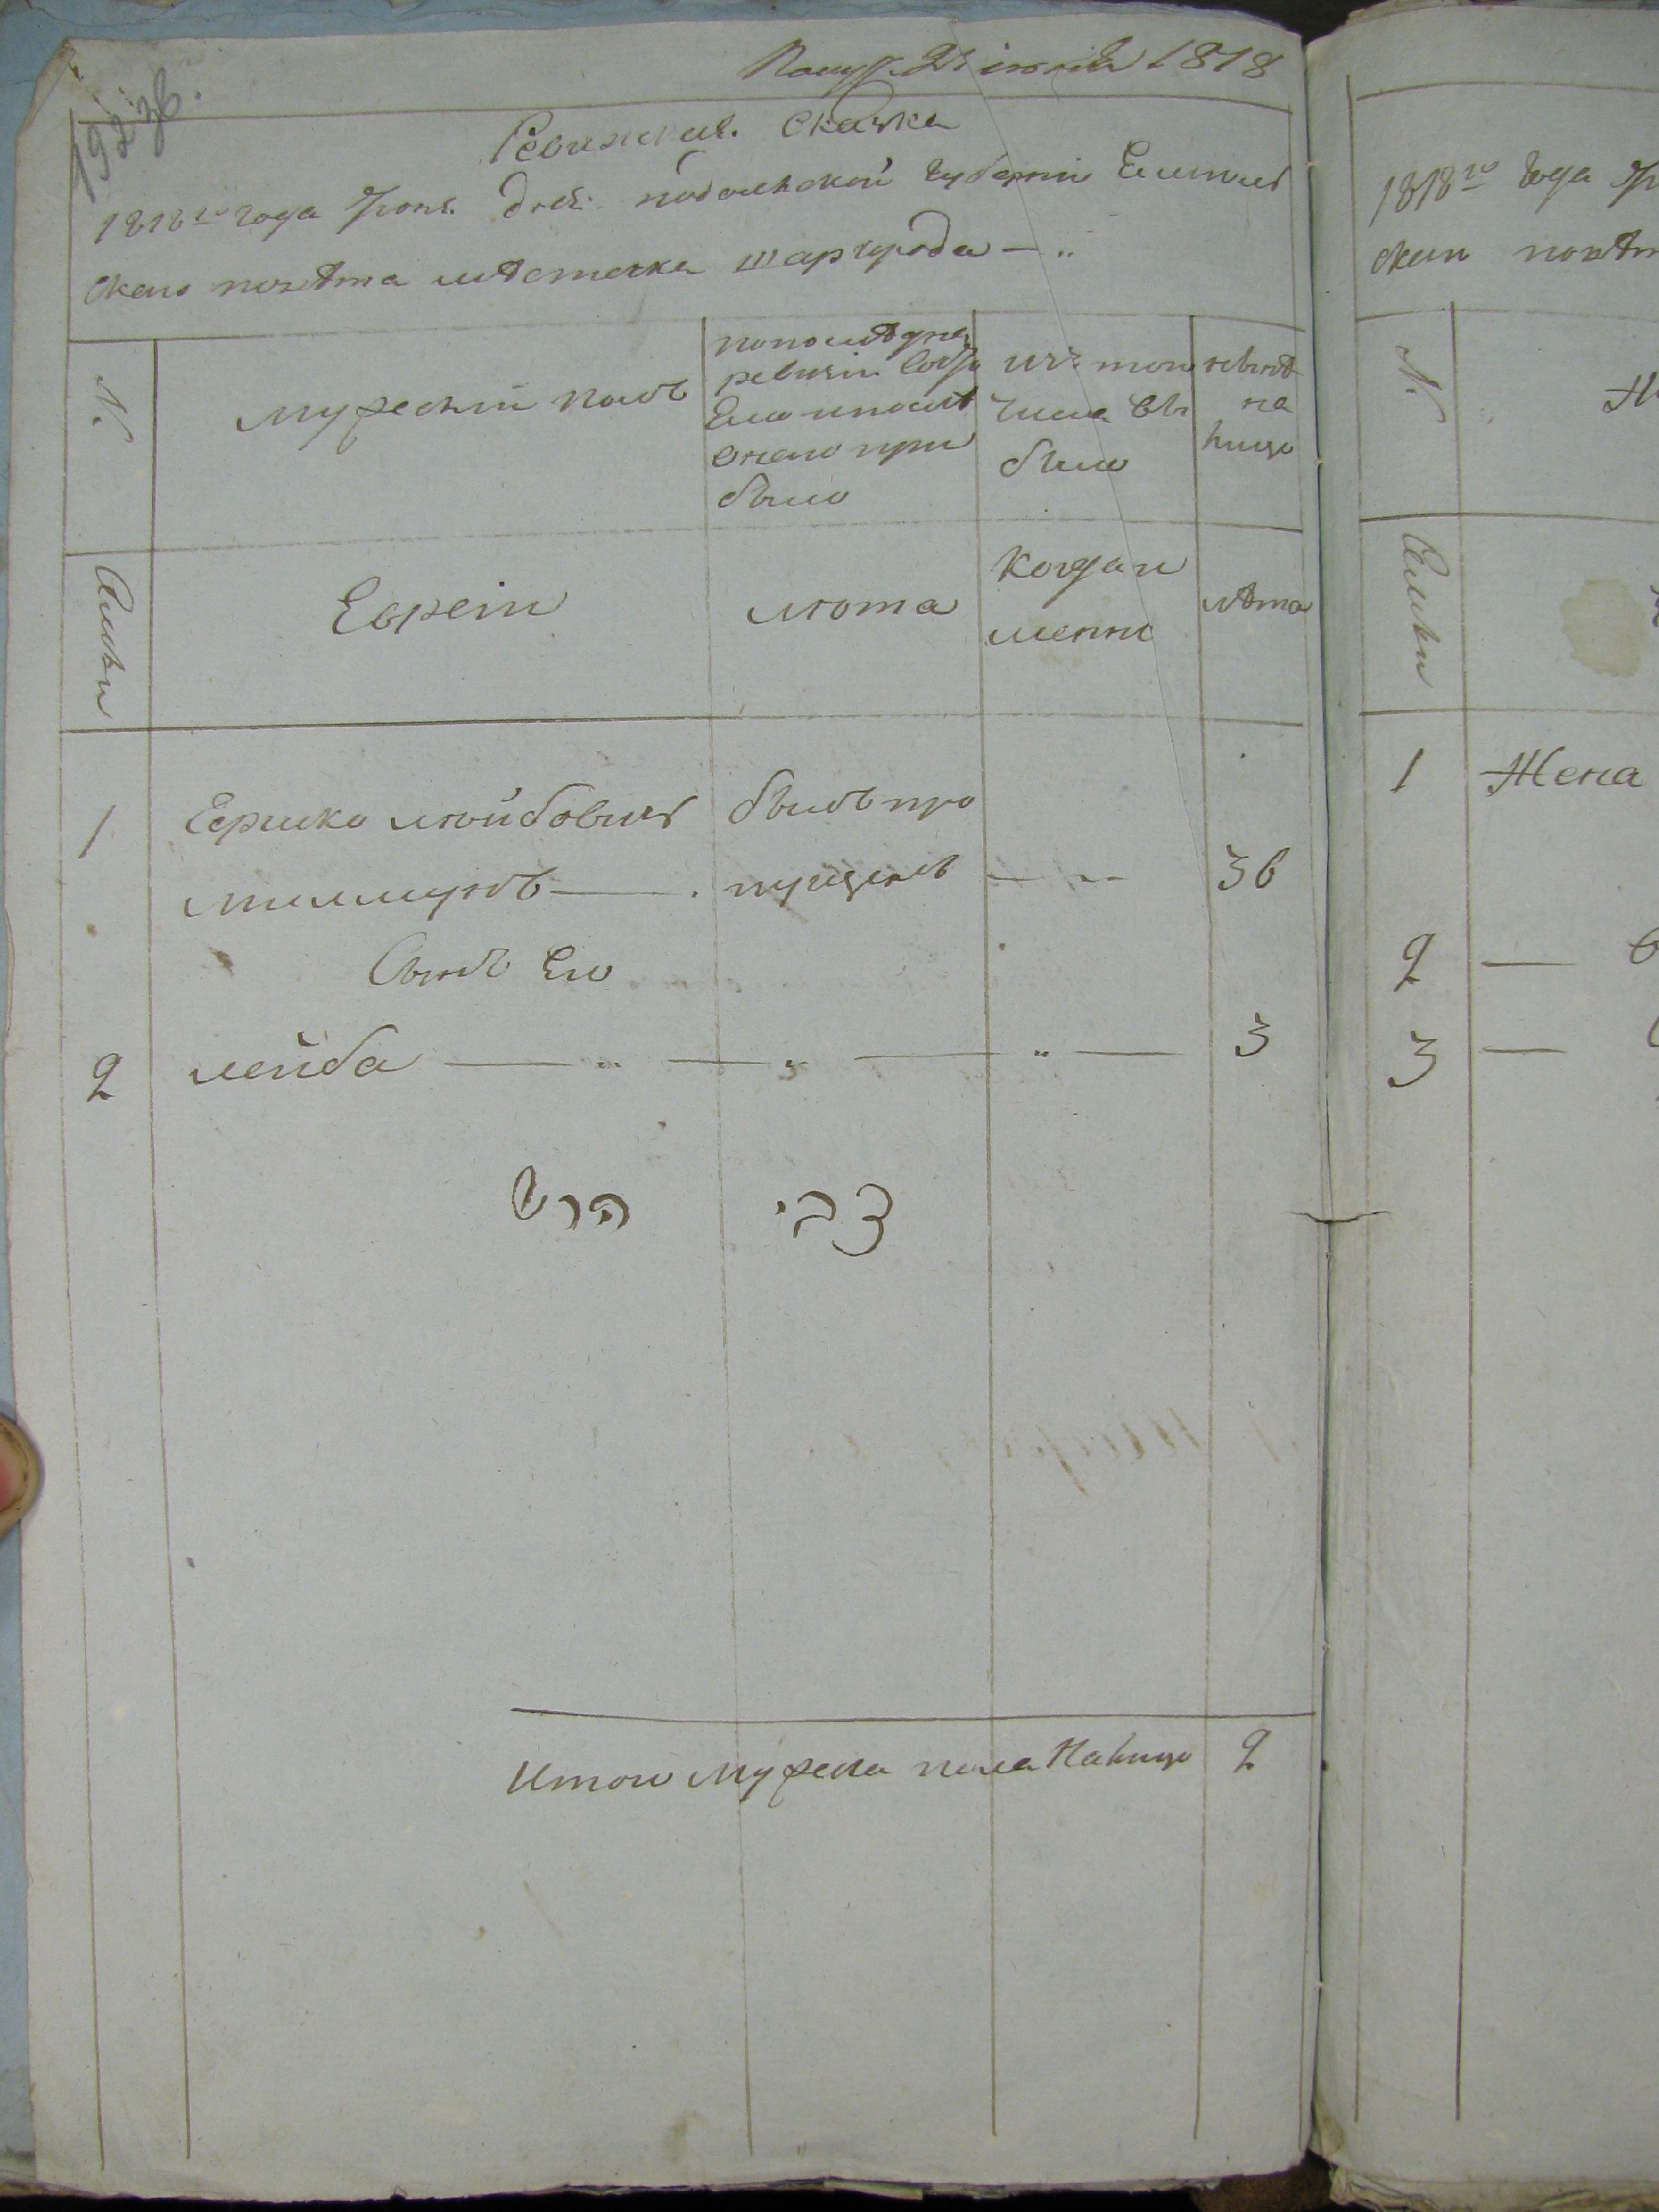 192 зв.
июня 1818
Ревизская Сказка
1818го года Июня дня подольской губернии Ямполь
скаго повѣта мѣстечка шаргрода — „
№
мужескій полъ
по последней
ревизіи состо
яло и после
онаго при
было
изъ того
числа вы
было
нынѣ
на
лицо
Семьи
Евреіи
лѣта
когда и
менно
лѣта
1
Гершко лейбовичъ
былъ про
пущенъ — „
36
Сынъ Его
2
лейба — „ — „ — „ —
3
צבי הרש
Итого мужеска пола Налицо 2
1818го года
скаго повѣт
№
Семьи
1 Жена
2 —
3 —